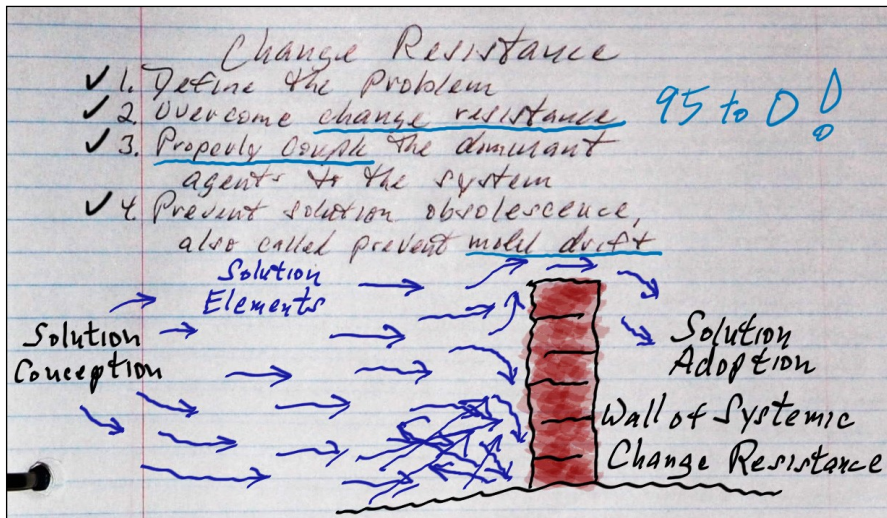 Change Resistance
✓ 1. Define the Problem
✓ 2. Overcome change resistance 95 to 0!
✓ 3. Properly Couple the dominant
agents to the system
✓ 4. Prevent solution obsolescence,
also called prevent model drift
Solution
Elements
Solution
Conception
Solution
Adoption
Wall of Systemic
Change Resistance